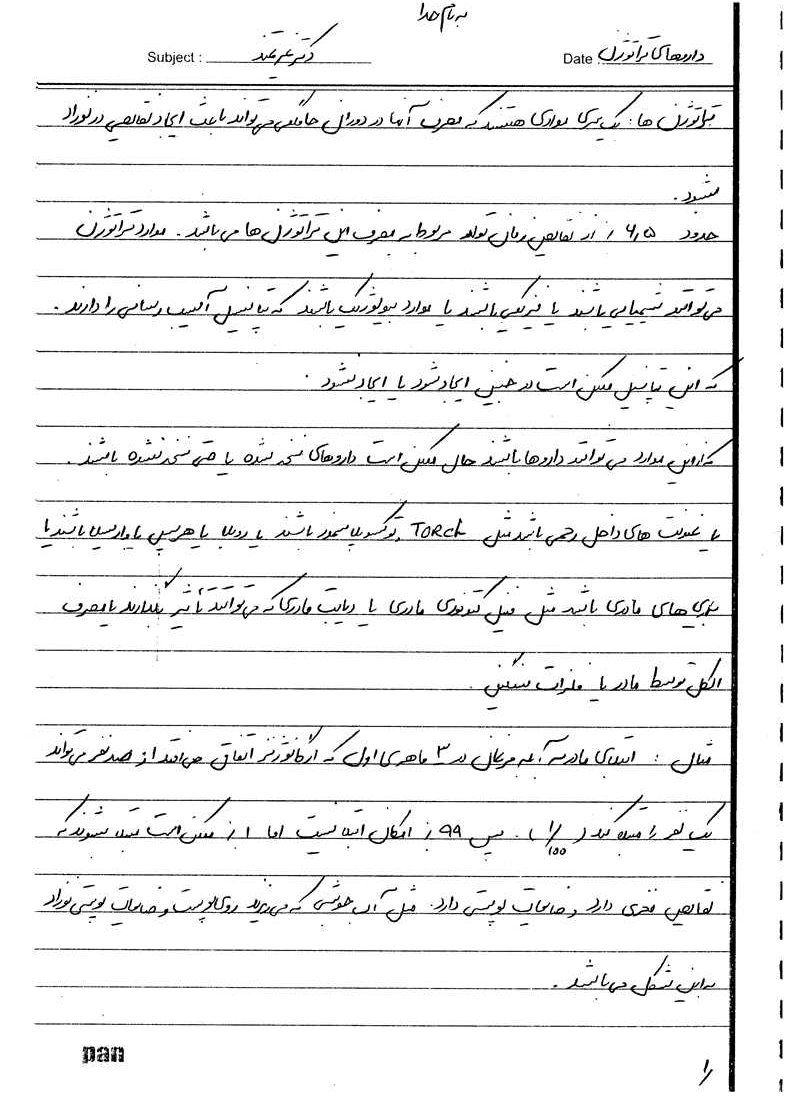 به نام خدا
Subject : دکتر Date : داروهای تراتوژن
تراتوژن ها : یک سری موادی هستند که مصرف آنها در دوران حاملگی می تواند باعث ایجاد نقایصی در نوزاد
شود .
حدود ۶٫۵ ٪ از نقایص زمان تولد مربوط به مصرف این تراتوژن ها می باشد . موارد تراتوژن
می توانند شیمیایی باشند یا فیزیکی باشند یا موارد بیولوژیک باشند که پتانسیل آسیب رسانی را دارند .
که این پتانسیل ممکن است در جنین ایجاد شود یا ایجاد نشود .
که از این موارد می توانند داروها باشند حال ممکن است داروهای نسخه شده یا حتی نسخه نشده باشند .
یا عفونت های داخل رحمی باشد مثل TORCH ، توکسوپلاسموز باشند یا روبلا یا هرپس یا واریسلا باشند یا
بیماری های مادری باشد مثل فنیل کتونوری مادری یا دیابت مادری که می توانند تأثیر بگذارند یا مصرف
الکل توسط مادر یا فلزات سنگین .
مثال : ابتلای مادر به آبله مرغان در ۳ ماهه ی اول که ارگانوژنز اتفاق می افتد از صد نفر می تواند
یک نفر را مبتلا کند ( ۱/۱۰۰ ) . پس ۹۹ ٪ امکان ابتلا نیست اما ۱ ٪ ممکن است مبتلا شوند که
نقایص مغزی دارد و ضایعات پوستی دارد . مثل آب جوشی که می ریزند روی پوست و ضایعات پوستی نوزاد
به این شکل می باشد .
pan
۱